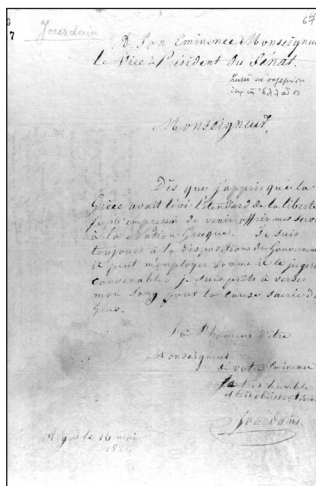 67
7
Jourdain
A Son Eminence Monseigneur
le Vice-Président du Sénat.
Monseigneur,
Dès que j'appris que la
Grèce avait levé l'étendard de la liberté
je m'empressai de venir offrir mes
à la Nation Grecque. Je suis
toujours à la disposition du
il peut m'employer comme il le jugera
convenable, je suis prêt à verser
mon sang pour la cause sacrée des
Grecs.
J'ai l'honneur d'être
Monseigneur
de votre Eminence
humble
Jourdain
le 16 mai